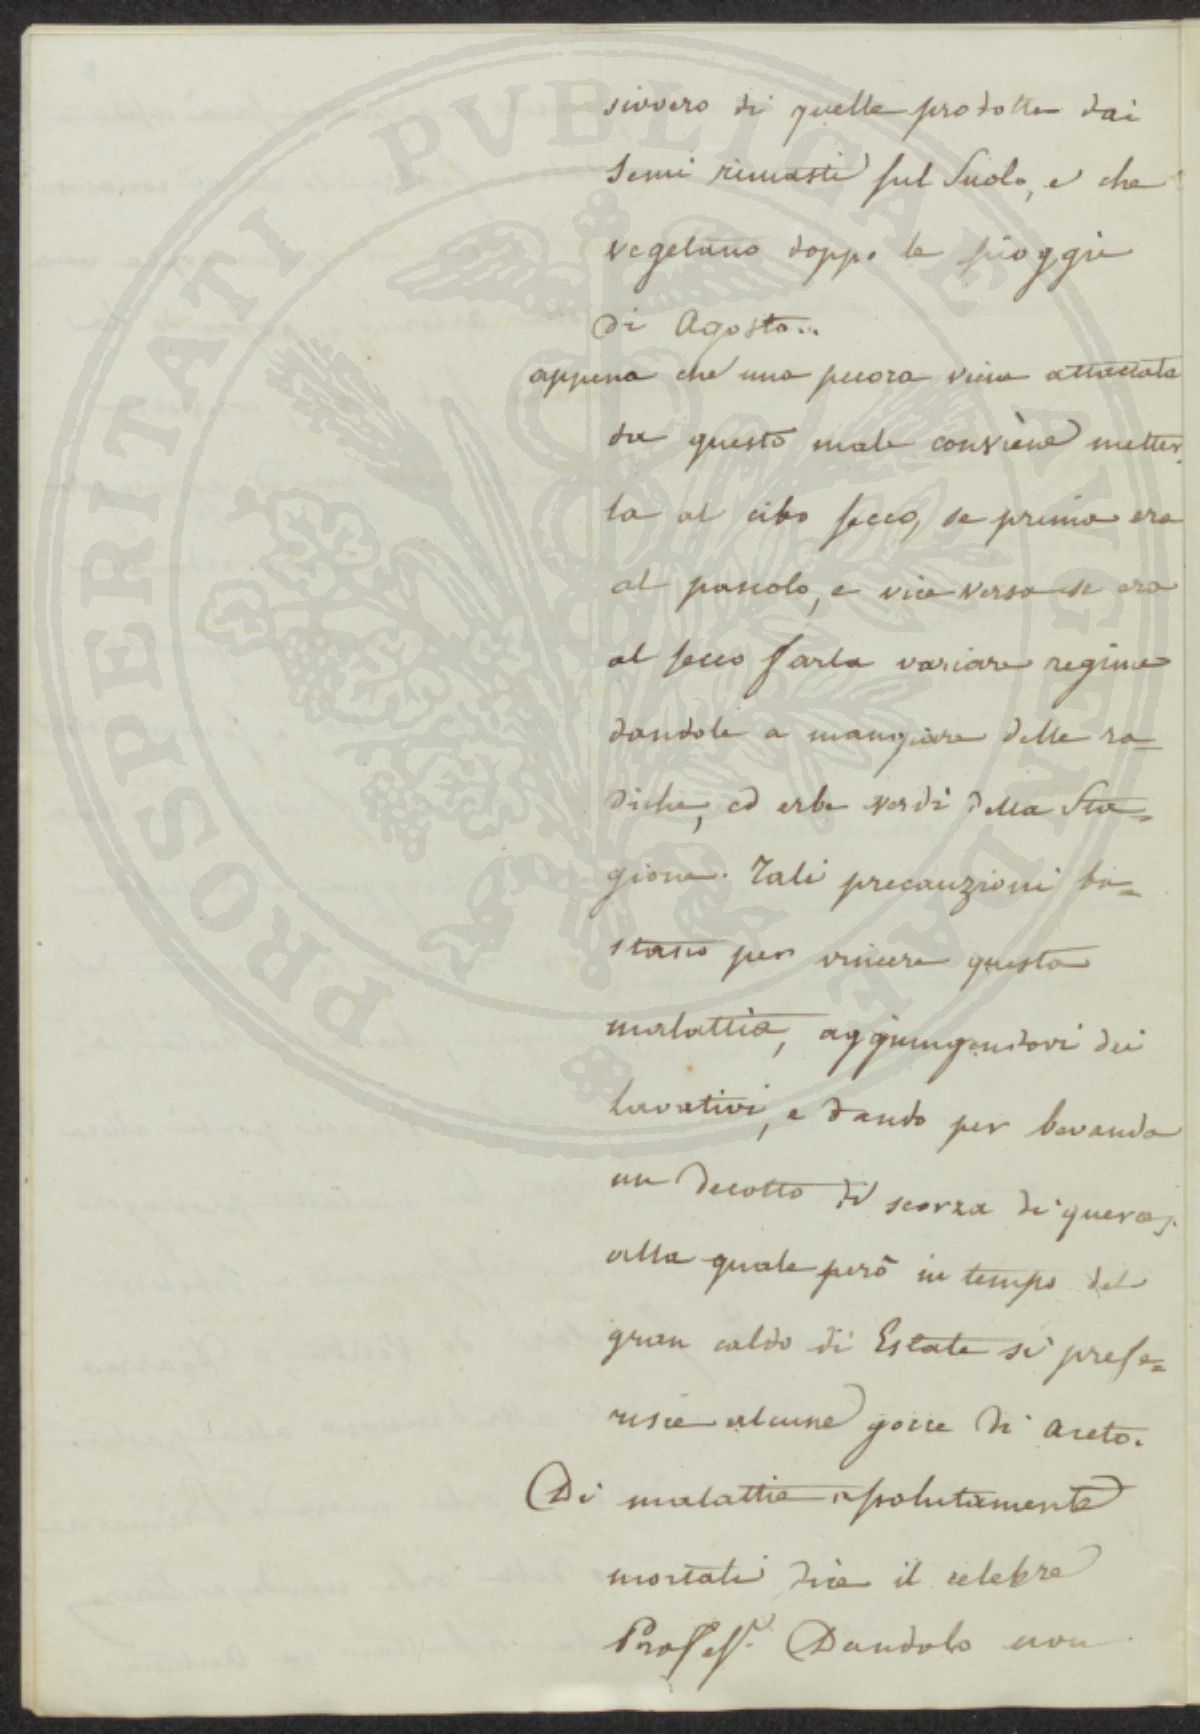 sivvero di quelle prodotte dai
Semi rimasti sul Suolo, e che
vegetano doppo le pioggie
di Agosto...
appena che una pecora viene attaccata
da questo male conviene metter,
la al cibo secco, se prima era
al pascolo, e vice versa se era
al secco farla variare regime
dandole a mangiare delle ra=
diche, ed erbe verdi della Sta=
gione. Tali precauzioni ba=
stano per vincere questa
malattia, aggiungendovi dei
lavativi, e dando per bevanda
un decotto di scorza di querc,
alla quale però in tempo del
gran caldo di Estate si prefe=
risce alcune gocce di aceto.
Di malattie assolutamente
mortali dice il celebre
Profess.r Dandolo non
PROSPERITATI PVBLICAE AVGENDAE